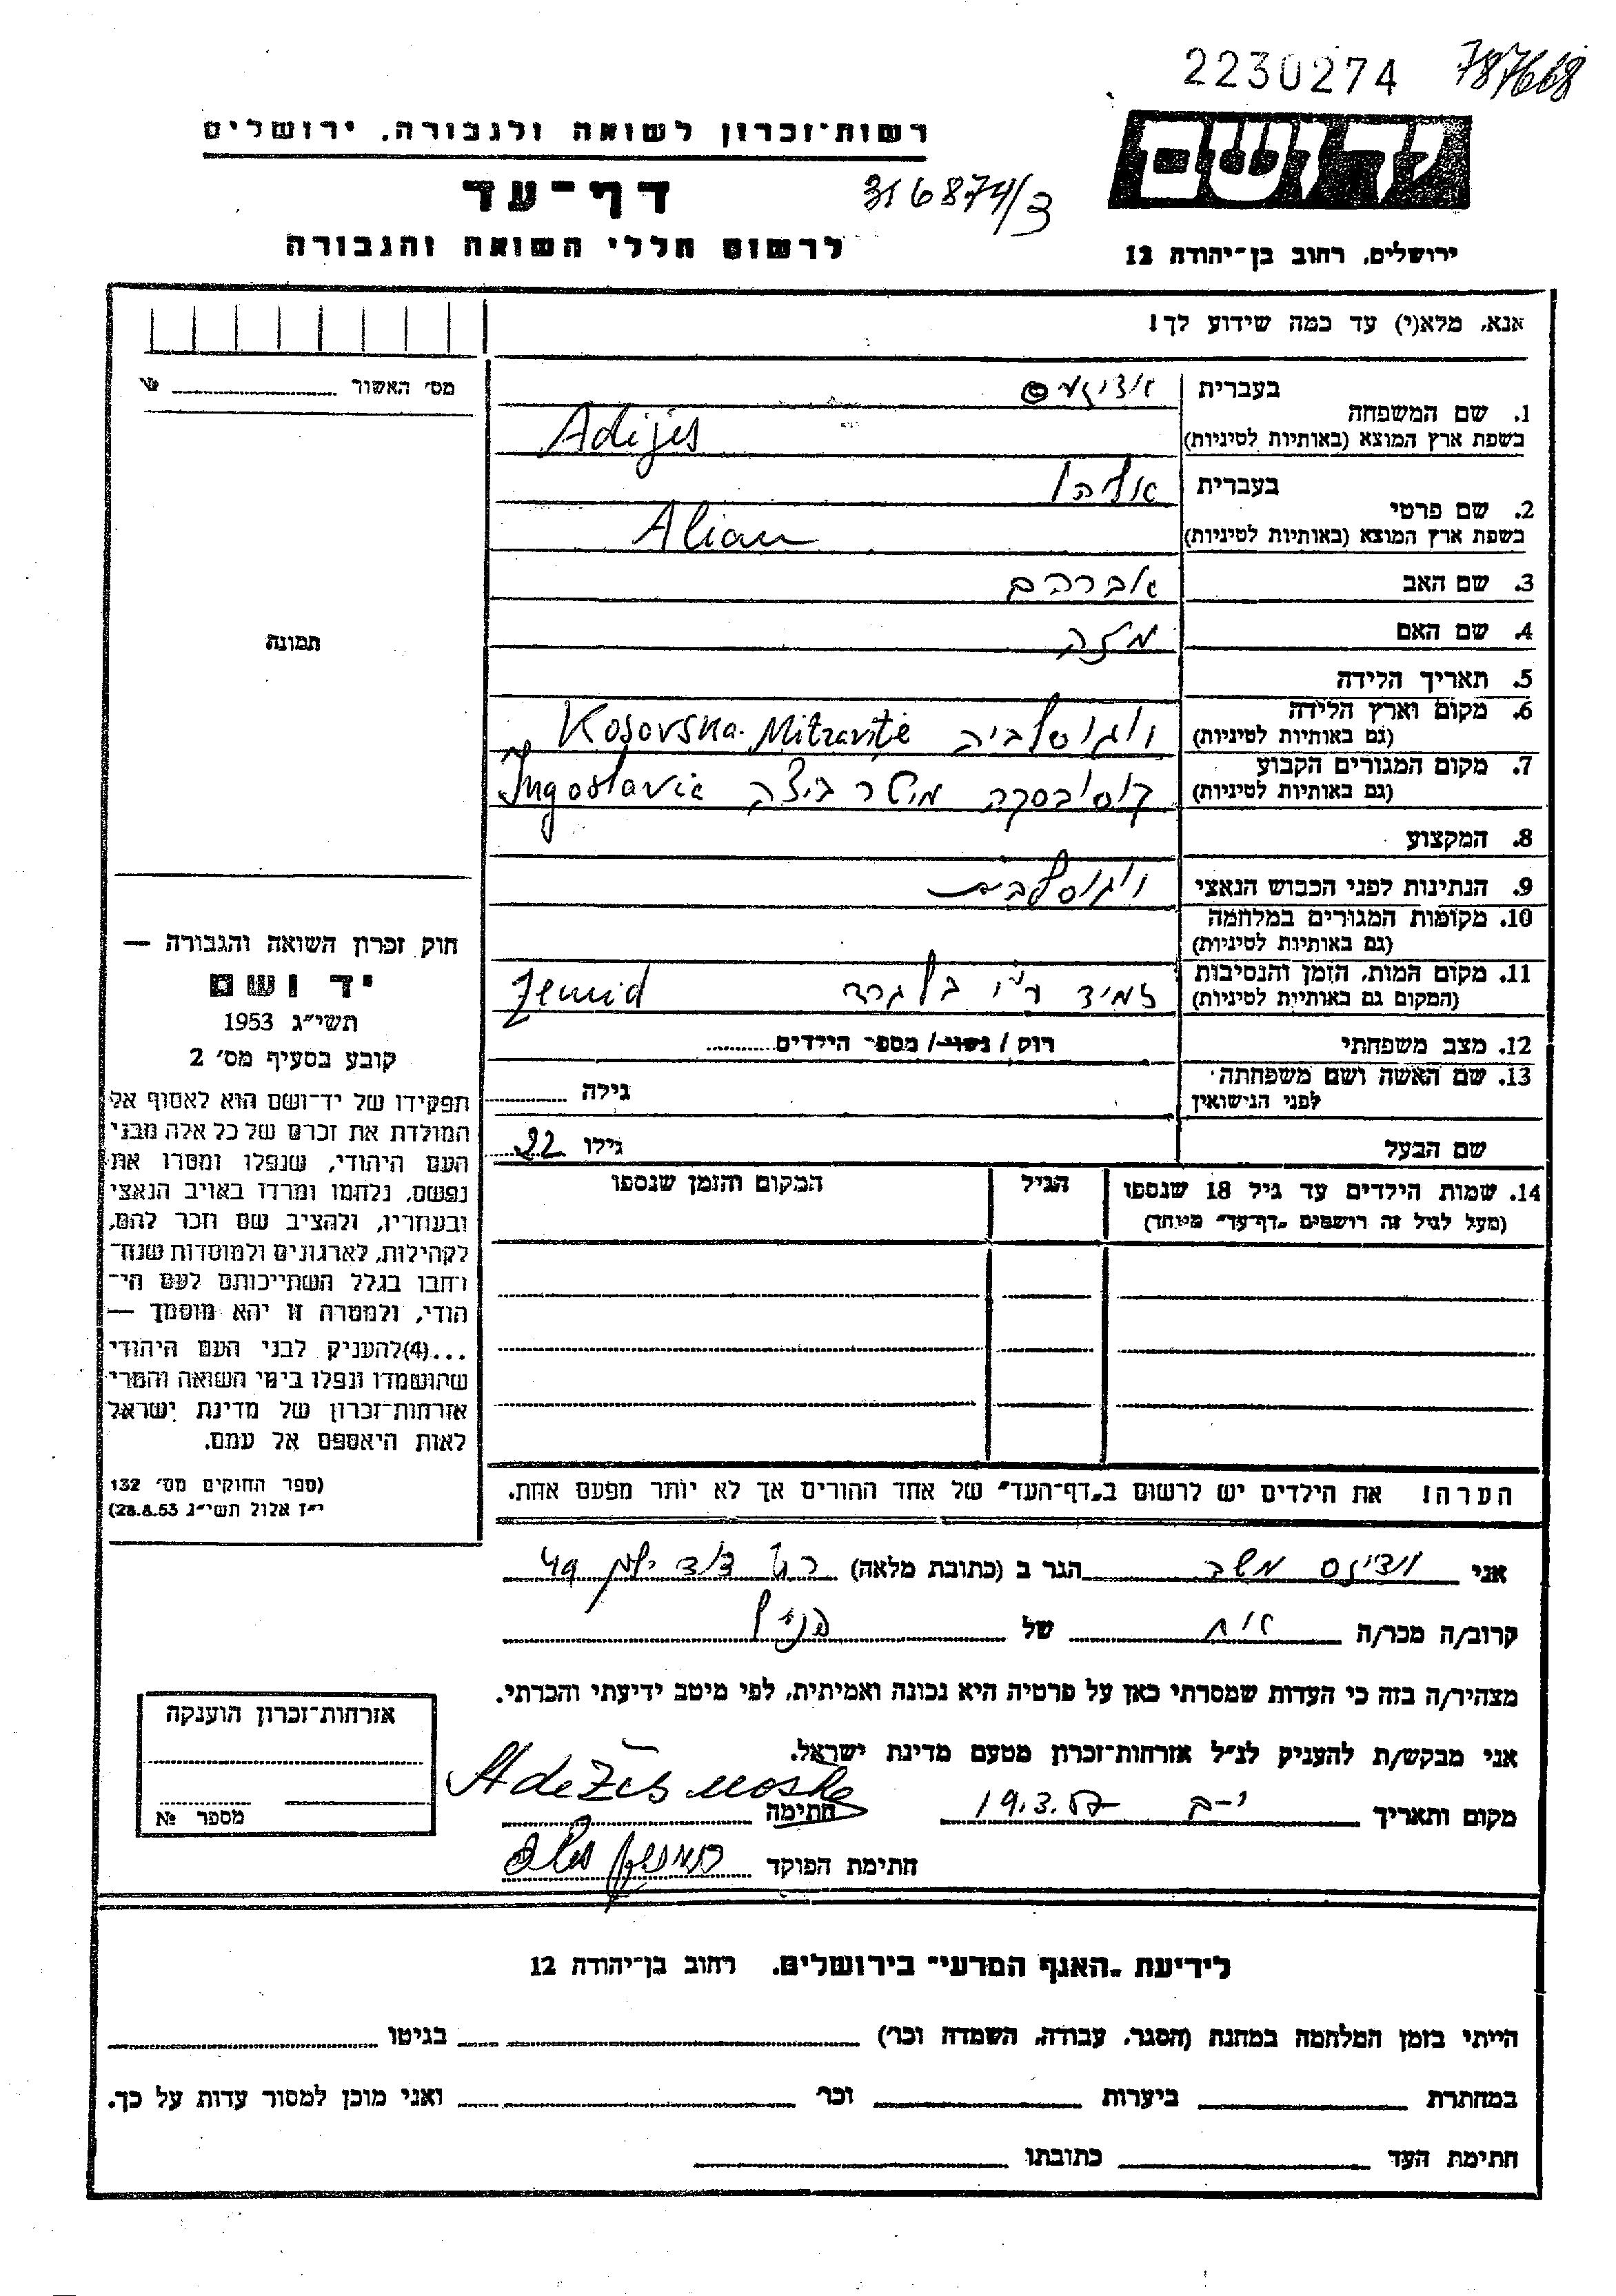 2230274 787668
רשות־זכרון לשואה ולגבורה, ירושלים
יד ושם
דף־עד
316874/3
לרשום חללי השואה והגבורה
ירושלים, רחוב בן־יהודה 12
אנא, מלא(י) עד כמה שידוע לך!
מס׳ האשור № 
1. שם המשפחה
בעברית
בשפת ארץ המוצא (באותיות לטיניות) Adijes
2. שם פרטי
בעברית אליהו
בשפת ארץ המוצא (באותיות לטיניות)
3. שם האב אברהם
4. שם האם מזלה
תמונה
5. תאריך הלידה
6. מקום וארץ הלידה יוגוסלביה Kosovska
(גם באותיות לטיניות)
7. מקום המגורים הקבוע קוסובסקה מיטרוביצה
(גם באותיות לטיניות)
8. המקצוע
9. הנתינות לפני הכבוש הנאצי
10. מקומות המגורים במלחמה
(גם באותיות לטיניות)
11. מקום המות, הזמן והנסיבות ע״י בלגרד
(המקום גם באותיות לטיניות)
12. מצב משפחתי רוק / נשוי / מספר הילדים
13. שם האשה ושם משפחתה
לפני הנישואין גילה
שם הבעל גילו 22
14. שמות הילדים עד גיל 18 שנספו הגיל המקום והזמן שנספו
(מעל לגיל זה רושמים „דף־עד״ מיוחד)
חוק זכרון השואה והגבורה —
יד ושם
תשי״ג 1953
קובע בסעיף מס׳ 2
תפקידו של יד־ושם הוא לאסוף אל
המולדת את זכרם של כל אלה מבני
העם היהודי, שנפלו ומסרו את
נפשם, נלחמו ומרדו באויב הנאצי
ובעוזריו, ולהציב שם וזכר להם,
לקהילות, לארגונים ולמוסדות שנח־
רבו בגלל השתייכותם לעם הי־
הודי, ולמטרה זו יהא מוסמך —
...(4)להעניק לבני העם היהודי
שהושמדו ונפלו בימי השואה והמרי
אזרחות־זכרון של מדינת ישראל
לאות היאספם אל עמם.
(ספר החוקים מס׳ 132
י״ז אלול תשי״ג 28.8.53)
הערה! את הילדים יש לרשום ב„דף־העד״ של אחד ההורים אך לא יותר מפעם אחת.
אני הגר ב (כתובת מלאה)
קרוב/ה מכר/ה אח של הנ״ל
מצהיר/ה בזה כי העדות שמסרתי כאן על פרטיה היא נכונה ואמיתית, לפי מיטב ידיעתי והכרתי.
אני מבקש/ת להעניק לנ״ל אזרחות־זכרון מטעם מדינת ישראל.
מקום ותאריך י-ם 19.3.57 חתימה
חתימת הפוקד
אזרחות־זכרון הוענקה
מספר №
לידיעת „האגף המדעי״ בירושלים, רחוב בן־יהודה 12
הייתי בזמן המלחמה במחנה (הסגר, עבודה, השמדה וכו׳) בגיטו
במחתרת ביערות וכו׳ ואני מוכן למסור עדות על כך.
חתימת העד כתובתו